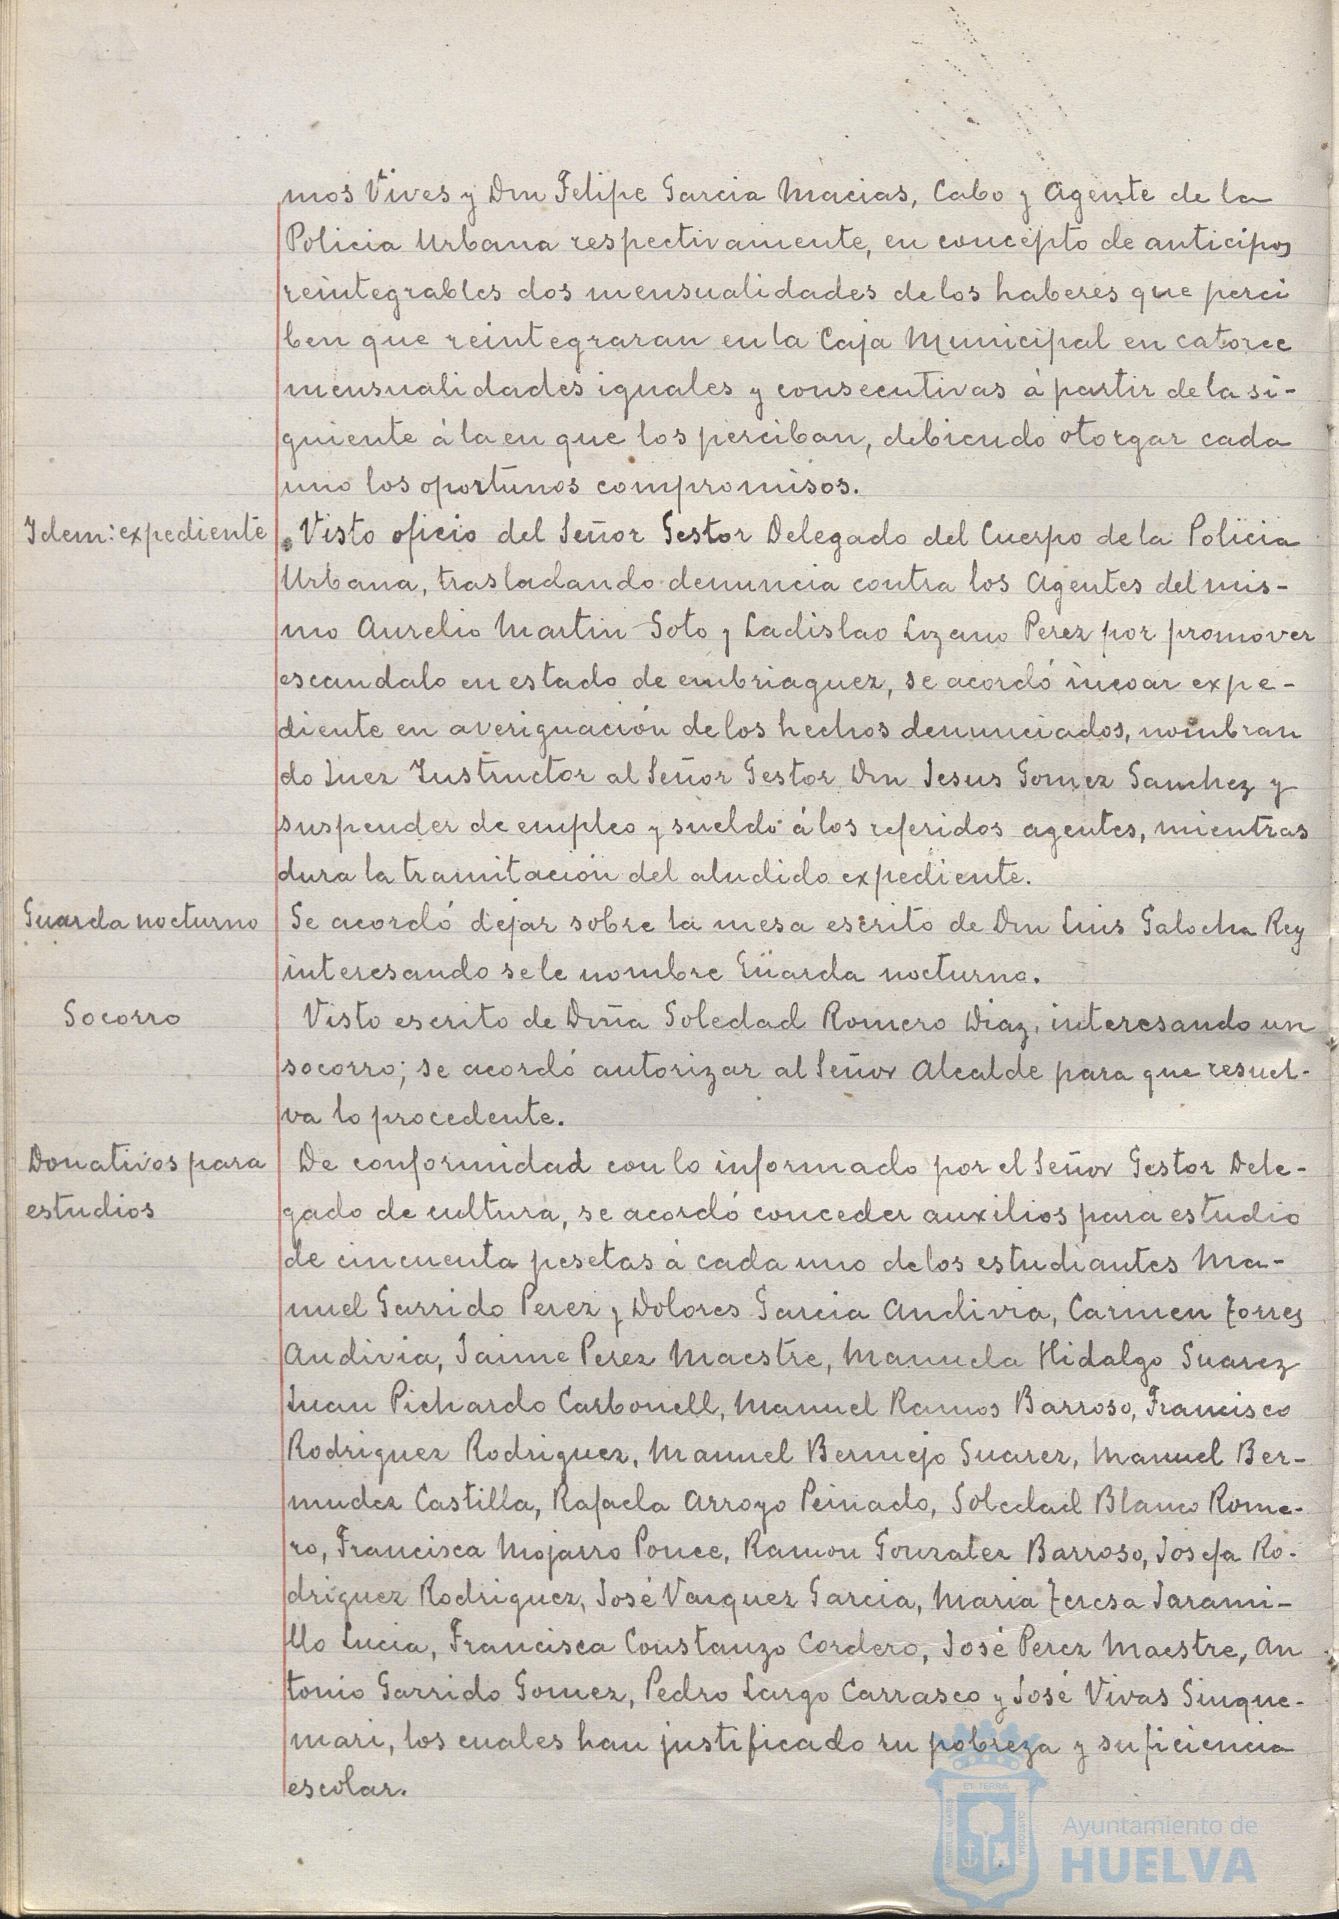 mos Vives y Don Felipe Garcia Macias, Cabo y Agente de la
Policia Urbana respectivamente, en concepto de anticipos
reintegrables dos mensualidades de los haberes que perci
ben que reintegraran en la Caja Municipal en catorce
mensualidades iguales y consecutivas á partir de la si-
guiente á la en que los perciban, debiendo otorgar cada
uno los oportunos compromisos.
Idem: expediente
Visto oficio del Señor Gestor Delegado del Cuerpo de la Policia
Urbana, trasladando denuncia contra los Agentes del mis-
mo Aurelio Martin Soto y Ladislao Lozano Perez por promover
escandalo en estado de embriaguez, se acordó incoar expe-
diente en averiguación de los hechos denunciados, nombran
do Juez Instructor al Señor Gestor Don Jesus Gomez Sanchez y
suspender de empleo y sueldo á los referidos agentes, mientras
dura la tramitación del aludido expediente.
Guarda nocturno
Se acordó dejar sobre la mesa escrito de Don Luis Galocha Rey
interesando se le nombre Guarda nocturno.
Socorro
Visto escrito de Doña Soledad Romero Diaz, interesando un
socorro; se acordó autorizar al Señor Alcalde para que resuel-
va lo procedente.
Donativos para
estudios
De conformidad con lo informado por el Señor Gestor Dele-
gado de cultura, se acordó conceder auxilios para estudio
de cincuenta pesetas á cada uno de los estudiantes Ma-
nuel Garrido Perez y Dolores Garcia Andivia, Carmen Torres
Andivia, Jaime Perez Maestre, Manuela Hidalgo Suarez
Juan Pichardo Carbonell, Manuel Ramos Barroso, Francisco
Rodriguez Rodriguez, Manuel Bermejo Suarez, Manuel Ber-
mudez Castilla, Rafaela Arroyo Peinado, Soledad Blanco Rome-
ro, Francisca Mojarro Ponce, Ramon Gonzalez Barroso, Josefa Ro-
driguez Rodriguez, José Vazquez Garcia, Maria Teresa Jarami-
llo Lucia, Francisca Constanzo Cordero, José Perez Maestre, An
tonio Garrido Gomez, Pedro Largo Carrasco y José Vivas Sinque-
mari, los cuales han justificado su pobreza y suficiencia
escolar.
Ayuntamiento de
HUELVA